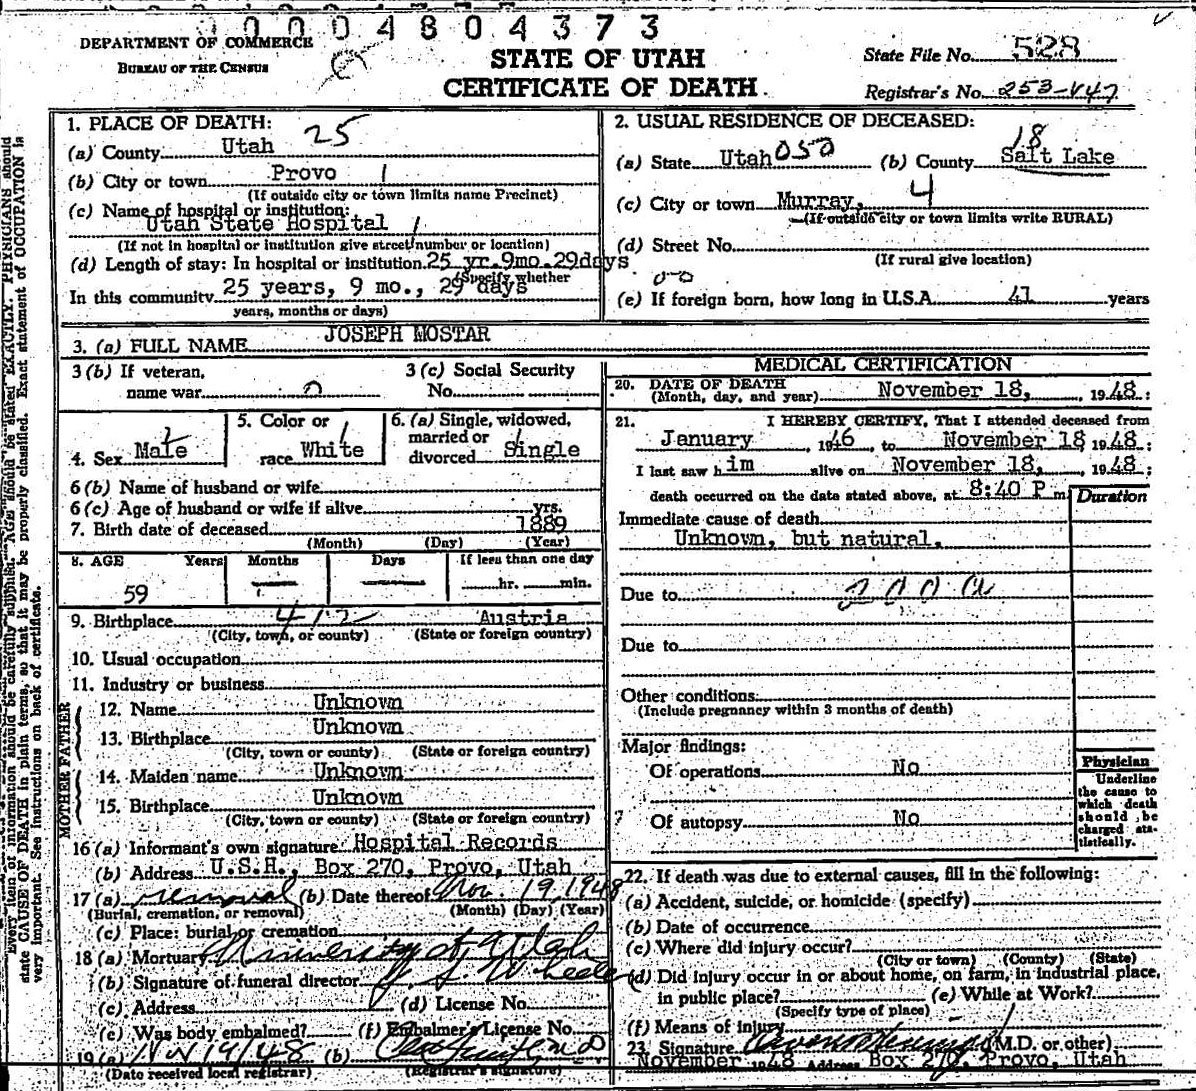 0004804373
DEPARTMENT OF COMMERCE
BUREAU OF THE CENSUS
STATE OF UTAH
CERTIFICATE OF DEATH
State File No. 528
Registrar's No. 253-V47
1. PLACE OF DEATH: 25
(a) County Utah
(b) City or town Provo 1
(If outside city or town limits name Precinct)
(c) Name of hospital or institution:
Utah State Hospital 1
(If not in hospital or institution give street number or location)
(d) Length of stay: In hospital or institution 25 yr. 9mo. 29days
(Specify whether
In this community 25 years, 9 mo., 29 days
years, months or days)
2. USUAL RESIDENCE OF DECEASED:
(a) State Utah 050 (b) County 18 Salt Lake
(c) City or town Murray, 4
(If outside city or town limits write RURAL)
(d) Street No.
(If rural give location)
(e) If foreign born, how long in U.S.A. 41 years
3. (a) FULL NAME JOSEPH MOSTAR
3 (b) If veteran,
name war
3 (c) Social Security
No.
4. Sex Male 5. Color or race White 6. (a) Single, widowed, married or divorced Single
6 (b) Name of husband or wife
6 (c) Age of husband or wife if alive yrs.
7. Birth date of deceased 1889
(Month) (Day) (Year)
8. AGE Years Months Days If less than one day
59 hr. min.
9. Birthplace 412 Austria
(City, town, or county) (State or foreign country)
10. Usual occupation
11. Industry or business
FATHER
12. Name Unknown
13. Birthplace Unknown
(City, town or county) (State or foreign country)
MOTHER
14. Maiden name Unknown
15. Birthplace Unknown
(City, town or county) (State or foreign country)
16 (a) Informant's own signature Hospital Records
(b) Address U.S.H., Box 270, Provo, Utah
17 (a) removal (b) Date thereof Nov. 19, 1948
(Burial, cremation, or removal) (Month) (Day) (Year)
(c) Place: burial or cremation
18 (a) Mortuary University of Utah
(b) Signature of funeral director S. Wheeler
(c) Address (d) License No.
(e) Was body embalmed? (f) Embalmer's License No.
19 (a) Nov 19/48 (b)
(Date received local registrar) (Registrar's signature)
MEDICAL CERTIFICATION
20. DATE OF DEATH
(Month, day, and year) November 18, 1948;
21. I HEREBY CERTIFY, That I attended deceased from
January, 1946 to November 18, 1948;
I last saw him alive on November 18, 1948;
death occurred on the date stated above, at 8:40 P m.
Duration
Immediate cause of death
Unknown, but natural.
Due to 200a
Due to
Other conditions
(Include pregnancy within 3 months of death)
Major findings:
Of operations No
Of autopsy No
Physician
Underline
the cause to
which death
should be
charged sta-
tistically.
22. If death was due to external causes, fill in the following:
(a) Accident, suicide, or homicide (specify)
(b) Date of occurrence
(c) Where did injury occur?
(City or town) (County) (State)
(d) Did injury occur in or about home, on farm, in industrial place,
in public place? (e) While at Work?
(Specify type of place)
(f) Means of injury
23. Signature (M.D. or other)
November 1948 Address Box 270, Provo, Utah
Every item of information should be carefully supplied. AGE should be stated EXACTLY. PHYSICIANS should
state CAUSE OF DEATH in plain terms, so that it may be properly classified. Exact statement of OCCUPATION is
very important. See instructions on back of certificate.